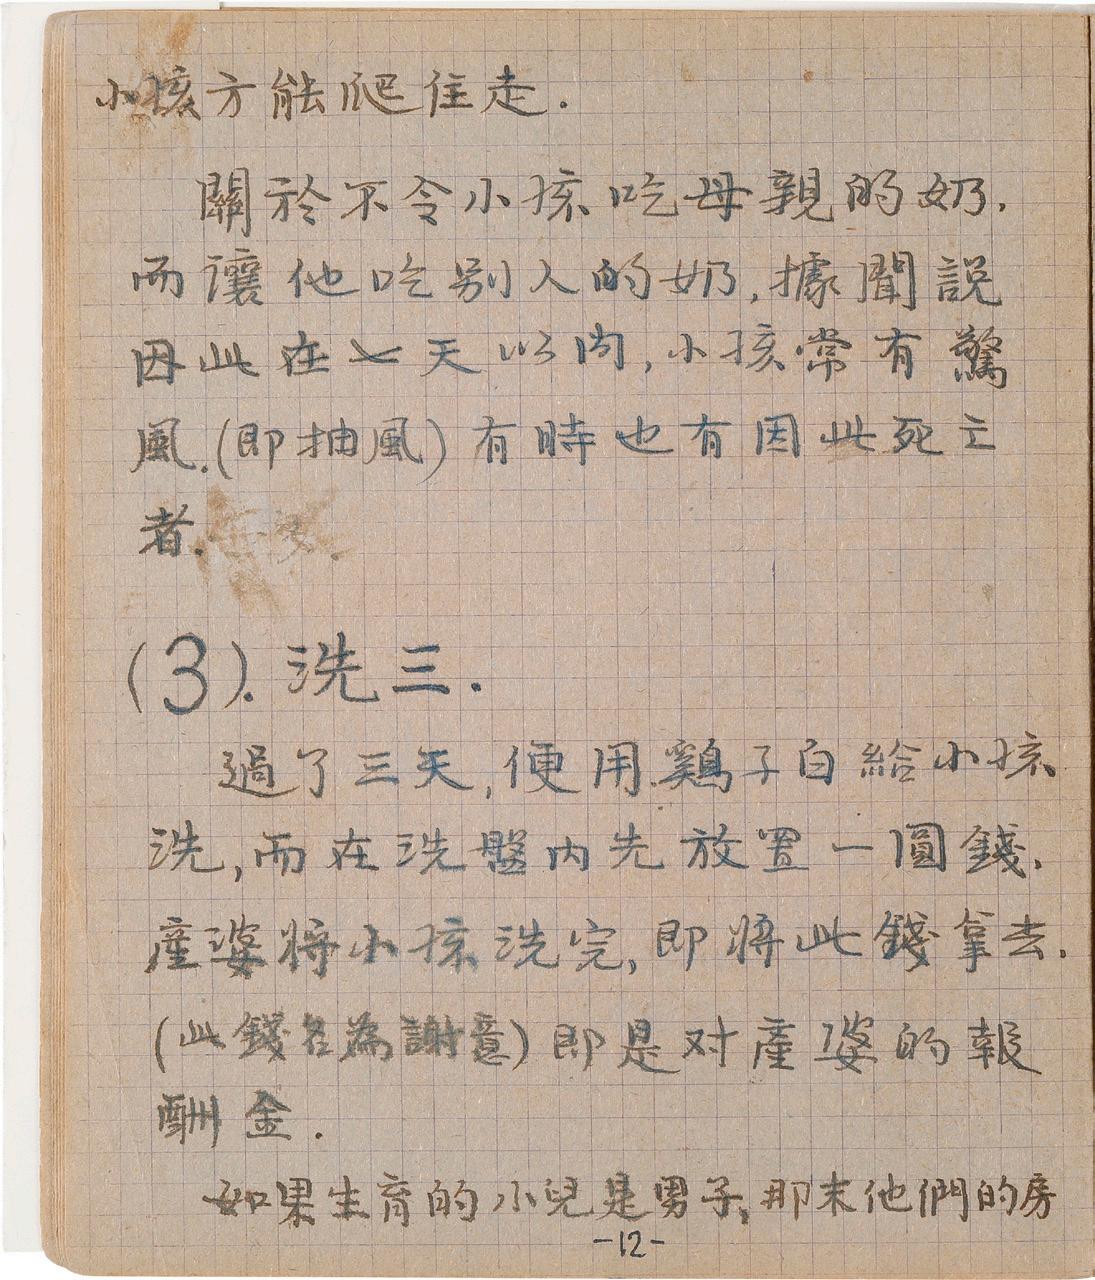 小孩方能爬住走.
關於不令小孩吃母親的奶.
而讓他吃别人的奶,據聞説
因此在七天以内,小孩常有驚
風.(即抽風)有時也有因此死亡
者.
(3).洗三.
過了三天,便用鷄子白給小孩
洗,而在洗盤内先放置一圓錢.
產婆將小孩洗完,即將此錢拿去.
(此錢名為謝意)即是对產婆的報
酬金.
如果生育的小兒是男子,那末他們的房
-12-